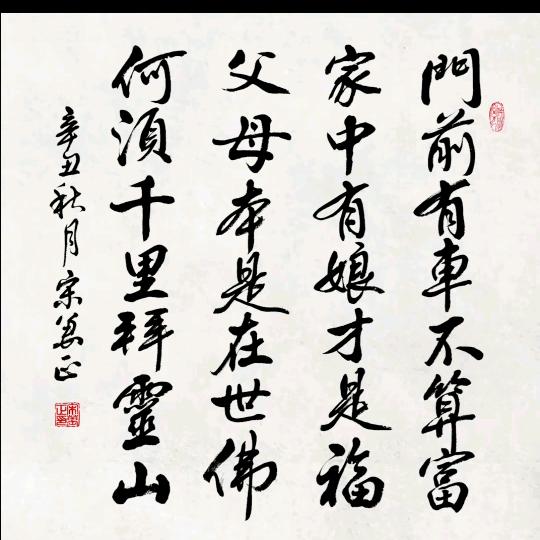 門前有車不算富
家中有娘才是福
父母本是在世佛
何須千里拜靈山
辛丑秋月宋益正